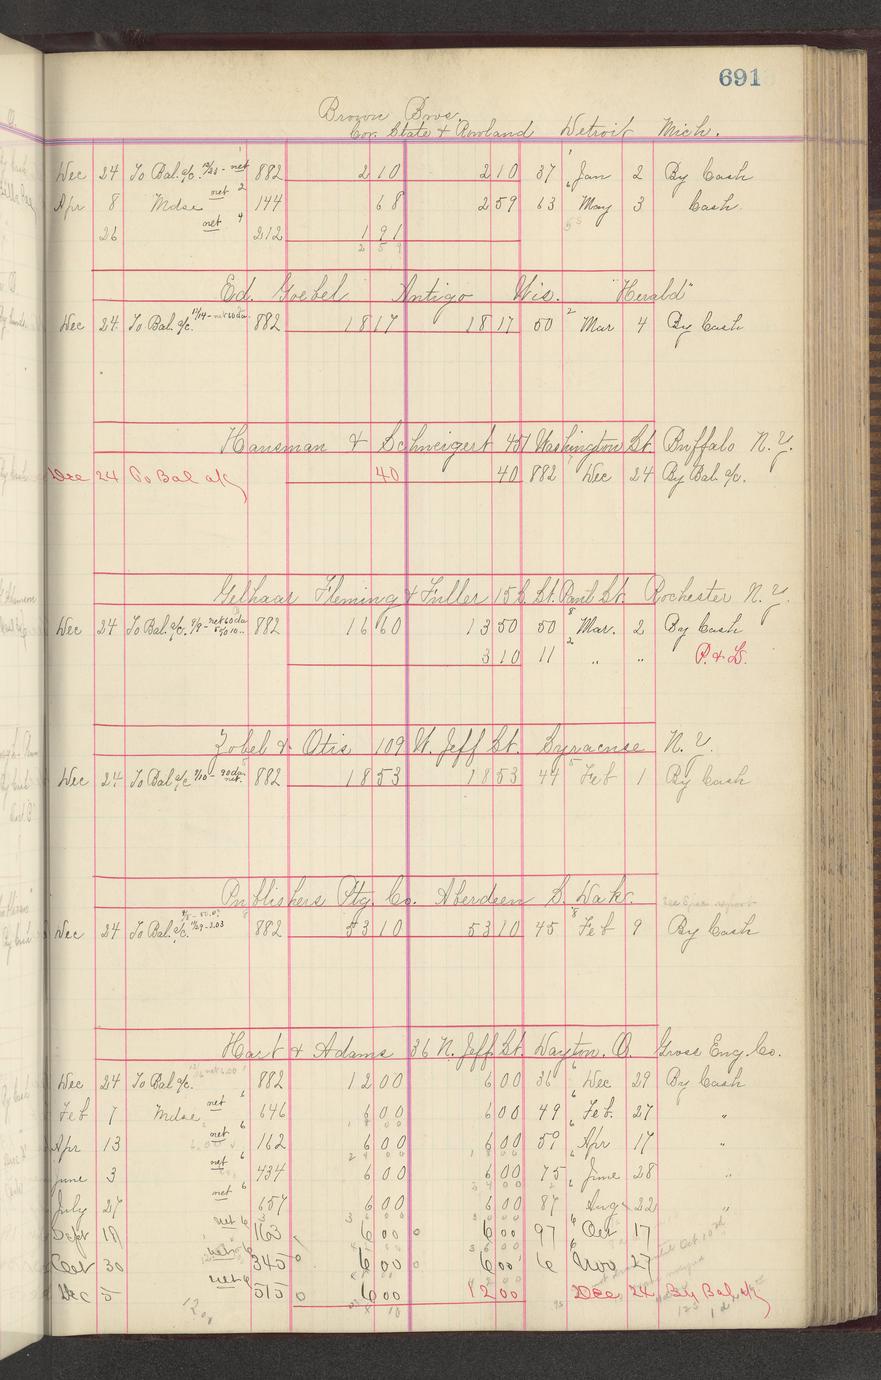 691
Brown Bros.
Cor. State & Rowland Detroit Mich.
Dec 24 To Bal. a/c. net 882 2 10 2 10 37 Jan 2 By Cash
Apr 8 Mdse net 2 144 68 2 59 63 May 3 Cash
26 net 4 212 1 91
2 5 9
Ed. Goebel Antigo Wis. "Herald"
Dec 24 To Bal. a/c. 882 18 17 18 17 50 Mar 4 By Cash
Hansman & Schweigert 451 Washington St. Buffalo N.Y.
Dec 24 To Bal a/c 40 40 882 Dec 24 By Bal. a/c.
Gelhaar Fleming & Fuller 15 S. St. Paul St. Rochester N.Y.
Dec 24 To Bal. a/c. 882 16 60 13 50 50 Mar. 2 By Cash
3 10 11 " " P. & L.
Zobel & Otis 109 W. Jeff St. Syracuse N.Y.
Dec 24 To Bal a/c 882 18 53 18 53 44 Feb 1 By Cash
Publishers Ptg. Co. Aberdeen S. Dak.
Dec 24 To Bal. a/c. 882 53 10 53 10 45 Feb 9 By Cash
Hart & Adams 36 N. Jeff St. Dayton. O. Gross Eng. Co.
Dec 24 To Bal a/c. 882 12 00 6 00 36 Dec 29 By Cash
Feb 7 Mdse net 6 646 6 00 6 00 49 Feb. 27 "
Apr 13 net 6 162 6 00 6 00 59 Apr 17 "
June 3 net 6 434 6 00 6 00 75 June 28 "
July 27 net 6 657 6 00 6 00 87 Aug 22 "
Sept 19 net 6 163 6 00 6 00 97 Oct 17
Oct 30 net 6 345 6 00 6 00 6 Nov 27
Dec 5 net 6 515 6 00 12 00 Dec 24 By Bal a/c